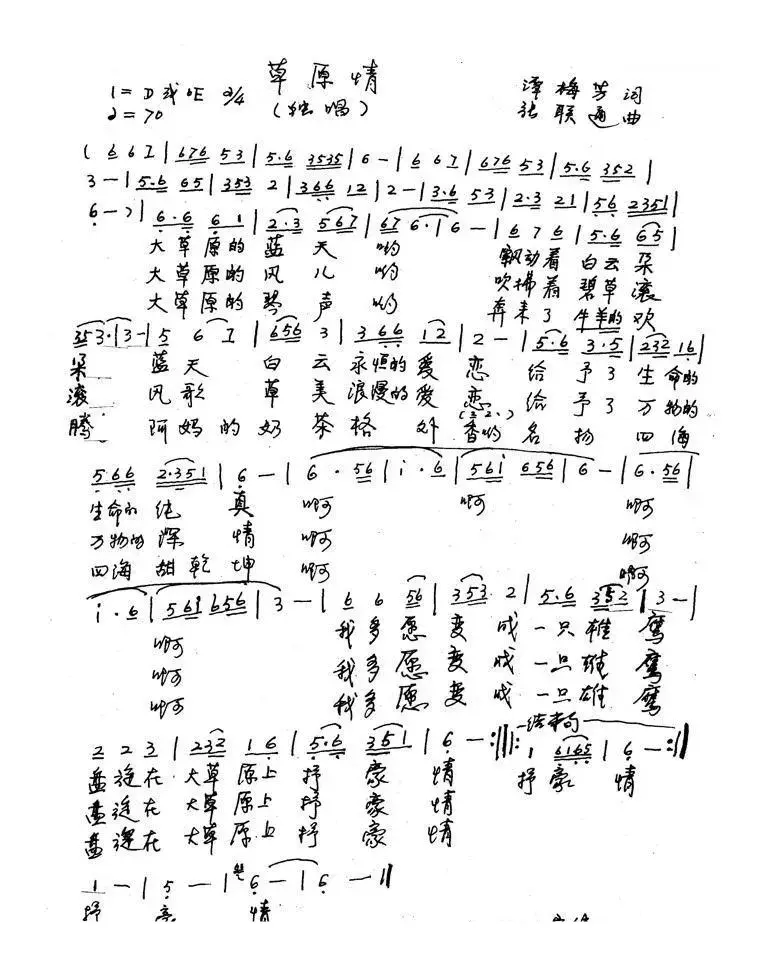 草原情
1=D或bE 2/4
(独唱)
谭梅芳词
♩=70
张联通曲
( 6 6 1̇ | 676 5 3 | 5·6 3535 | 6 - | 6 6 1̇ | 676 5 3 | 5·6 352 |
3 - | 5·6 65 | 353 2 | 366 12 | 2 - | 3·6 53 | 2·3 21 | 56 2351 |
6 - ) | 6·6 61 | 2·3 567 | 67 6· 6 | 6 - | 6 7 6 | 5·6 65 |
大草原的蓝天哟 飘动着白云朵
大草原的风儿哟 吹拂着碧草滚
大草原的琴声哟 奔来了牛羊的欢
353· | 3 - | 5 6 1̇ | 656 3 | 3 66 12 | 2 - | 5·6 3·5 | 232 16 |
朵 蓝天白云永恒的爱恋给予了生命的
滚 风歌草美浪漫的爱恋给予了万物的
(2 2.)
腾 阿妈的奶茶格外香哟名扬四海
5·66 2·351 | 6 - | 6 · 56 | 1̇ · 6 | 561̇ 656 | 6 - | 6 · 56 |
生命的纯真啊 啊 啊
万物的深情啊 啊
四海甜乾坤啊 啊
1̇ · 6 | 561̇ 656 | 3 - | 6 6 56 | 353 2 | 5·6 352 | 3 - |
啊 我多愿变成一只雄鹰
啊 我多愿变成一只雄鹰
啊 我多愿变成一只雄鹰
结束句
2 2 3 | 232 1 6 | 5·6 351 | 6 - :‖: 1 6165 | 6 - :‖
盘旋在大草原上抒豪情 抒豪情
盘旋在大草原上抒豪情
盘旋在大草原上抒豪情
1 - | 5 - | 6 - | 6 - ‖
抒豪情